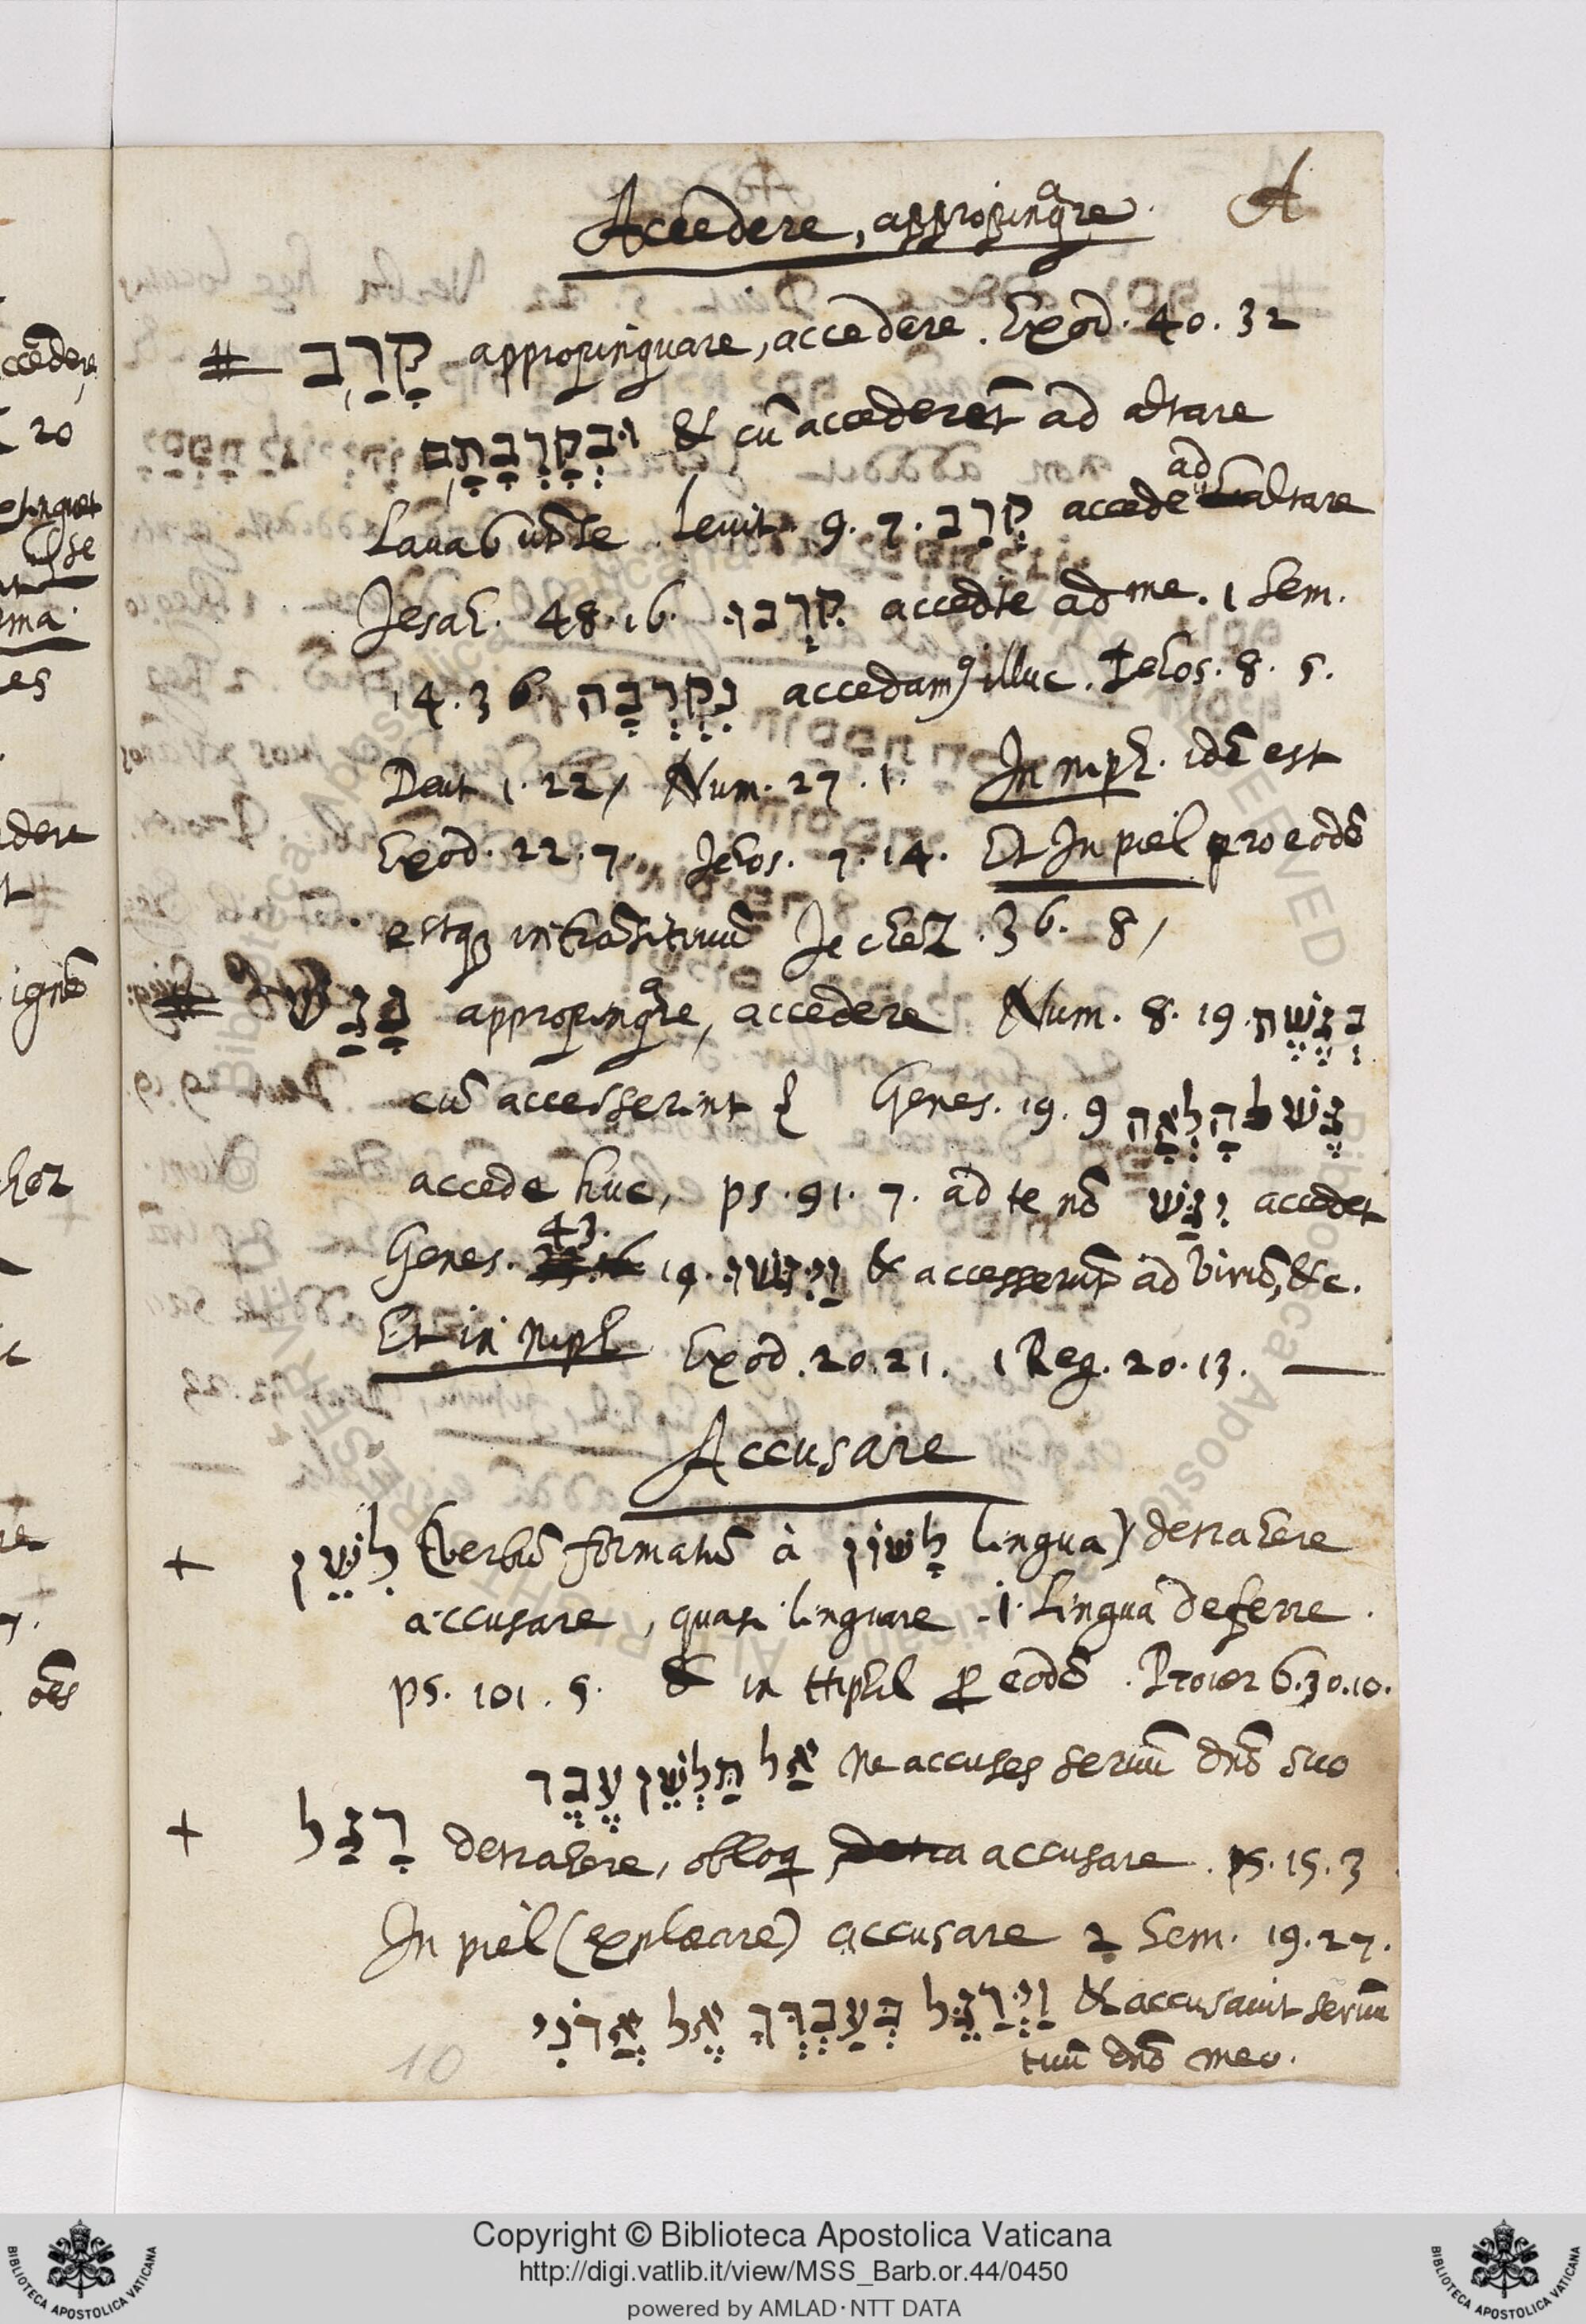 A
Accedere, appropinqre
# קָרַב appropinquare, accedere. Exod. 40. 32
וּבְקָרְבָתָם & cū accederēt ad altare
Lauabūt se. Leuit. 9. 7. קְרַב accede ad altare
Jesah. 48. 16. קִרְבוּ accedite ad me. 1 Sem.
14. 36. נִקְרְבָה accedamꝰ illuc. Iehos. 8. 5.
Deut 1. 22, Num. 27. 1. In niph. idē est
Exod. 22. 7. Jehos. 7. 14. Et In piel pro eodē
estqꝫ intrāsitiuū Jechez. 36. 8,
# נָגַשׁ appropinqre, accedere Num. 8. 19. בְּגֶשֶׁת
cū accesserint Genes. 19. 9 גֶּשׁ הָלְאָה
accede huc, ps. 91. 7. ad te nō יִגַּשׁ accedet
Genes. 43. 19. וַיִּגְּשׁוּ & accesserūt ad virū, &c.
Et in niph Exod. 20. 21. 1 Reg. 20. 13.
Accusare
+ לִשֵּׁן (verbū formatū à לָשׁוֹן lingua) detrahere
accusare, quasi linguare .i. Lingua deferre.
ps. 101. 5. & in Hiphil ꝓ eodē. Prouerb. 30. 10.
אַל תַּלְשֵׁן עֶבֶד ne accuses seruū dnō suo
+ רָגַל detrahere, obloq accusare. ps. 15. 3
In piel (explorare) accusare 2 Sem. 19. 27.
וַיְרַגֵּל בְּעַבְדְּךָ אֶל אֲדֹנִי & accusauit seruū
tuū dnō meo.
10
ccēdere
20
se
ma
es
dere
t
ignē
hor
7.
Copyright © Biblioteca Apostolica Vaticana
http://digi.vatlib.it/view/MSS_Barb.or.44/0450
powered by AMLAD·NTT DATA
BIBLIOTECA APOSTOLICA VATICANA
BIBLIOTECA APOSTOLICA VATICANA